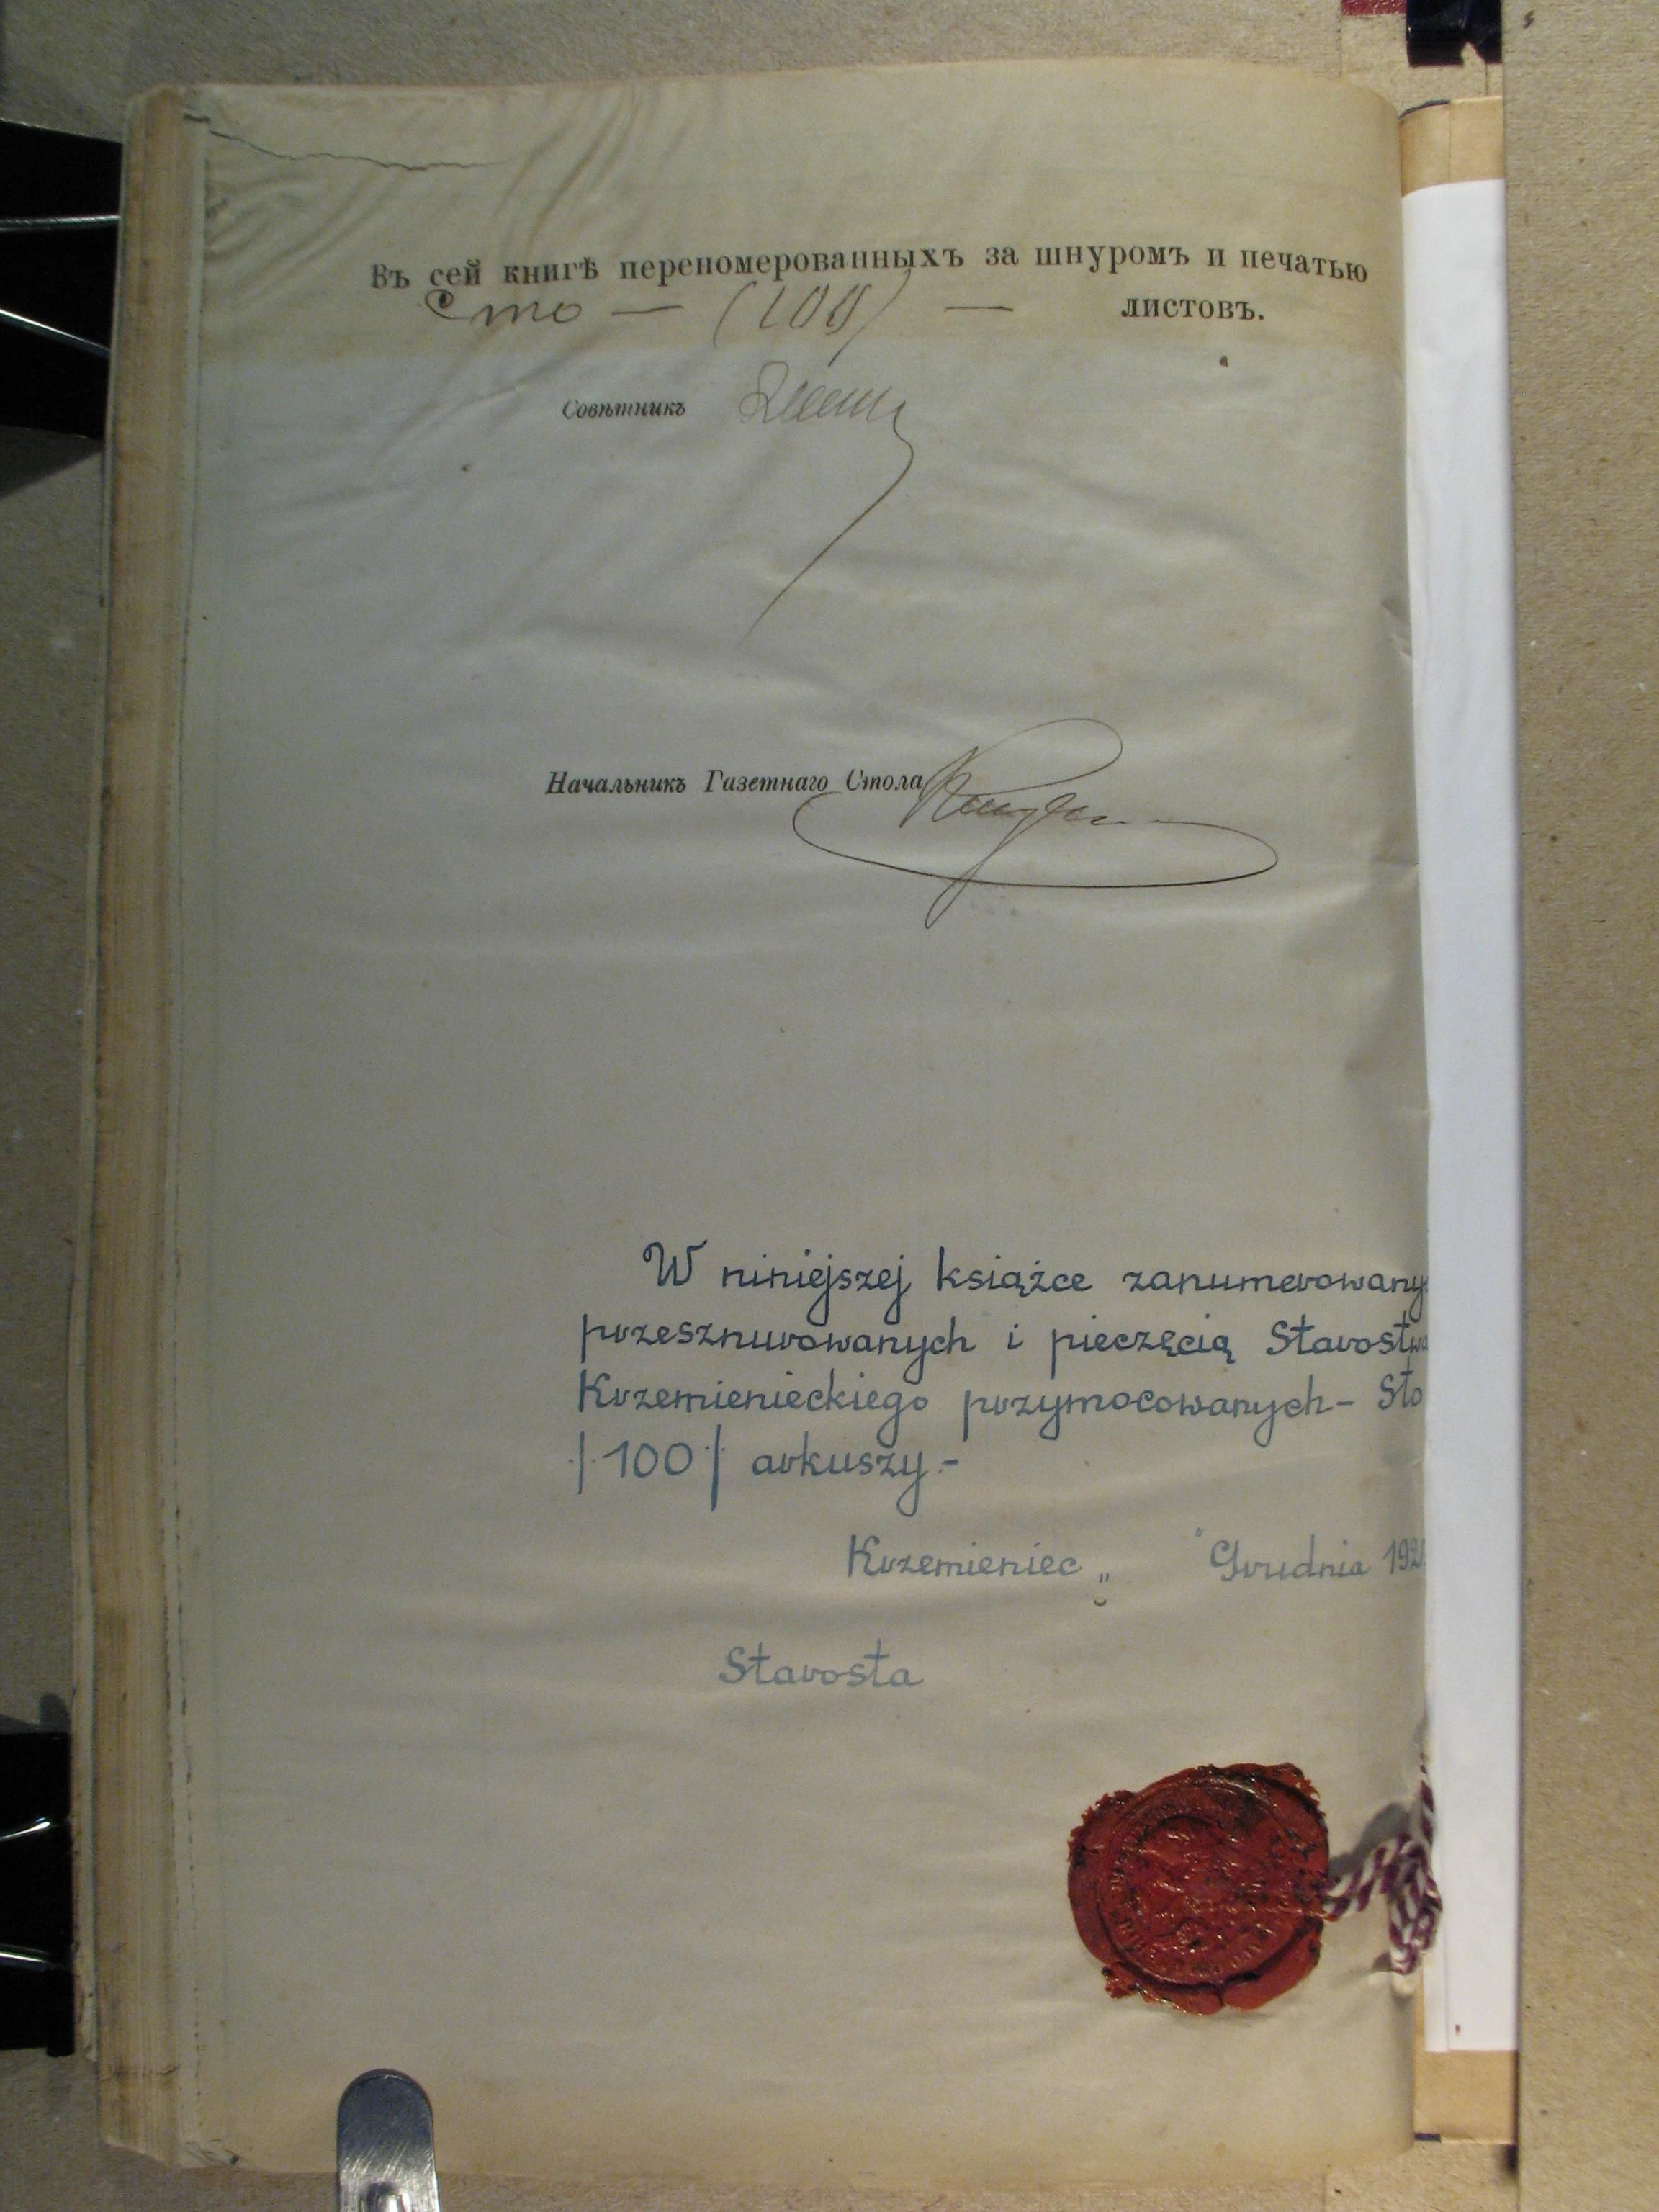 Въ сей книгѣ переномерованныхъ за шнуромъ и печатью
Сто — (100) — листовъ.
Совѣтникъ
Начальникъ Газетнаго Стола
W niniejszej książce zanumerowany
przesznurowanych i pieczęcią Starostwa
Krzemienieckiego przymocowanych- Sto
/100/ arkuszy.-
Krzemieniec „ " Grudnia 192
Starosta